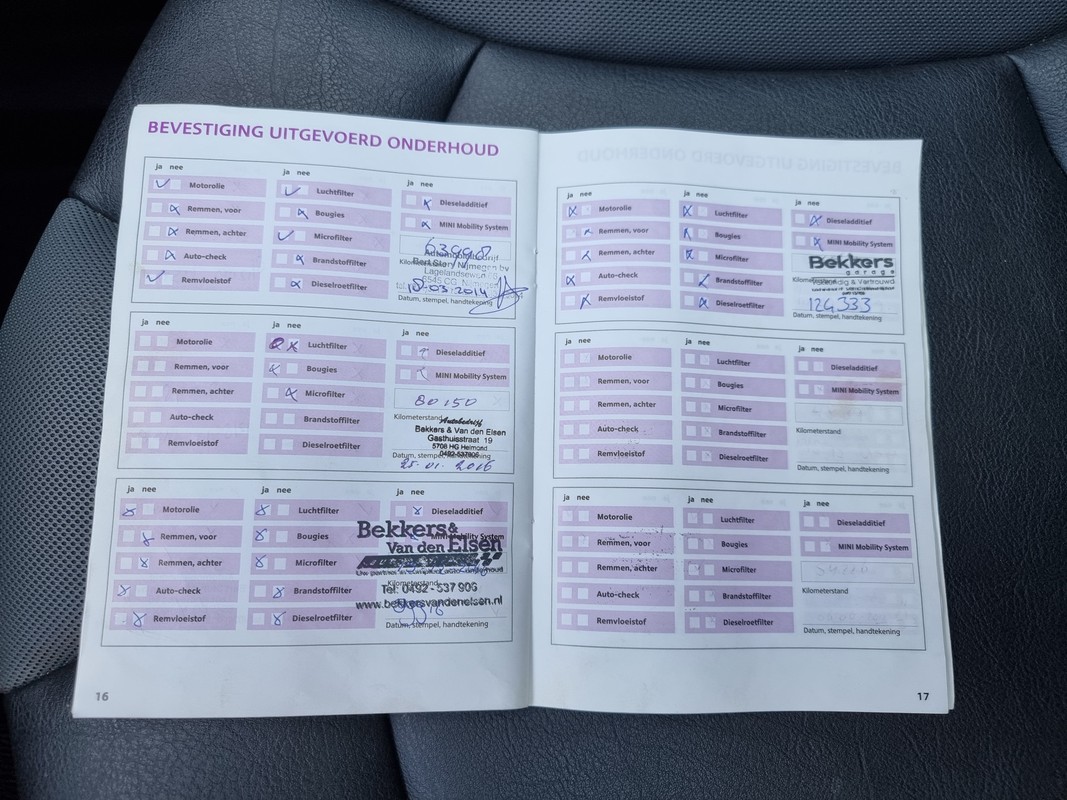 BEVESTIGING UITGEVOERD ONDERHOUD
ja nee
Motorolie
Remmen, voor
Remmen, achter
Auto-check
Remvloeistof
ja nee
Luchtfilter
Bougies
Microfilter
Brandstoffilter
Dieselroetfilter
ja nee
Dieseladditief
MINI Mobility System
63998
Automobielbedrijf
Bert Story Nijmegen bv
Datum, stempel, handtekening
ja nee
Motorolie
Remmen, voor
Remmen, achter
Auto-check
Remvloeistof
ja nee
Luchtfilter
Bougies
Microfilter
Brandstoffilter
Dieselroetfilter
ja nee
Dieseladditief
MINI Mobility System
80150
Kilometerstand
Autobedrijf
Bekkers & Van den Elsen
Gasthuisstraat 19
5708 HG Helmond
0492-537906
Datum, stempel, handtekening
25-01-2016
ja nee
Motorolie
Remmen, voor
Remmen, achter
Auto-check
Remvloeistof
ja nee
Luchtfilter
Bougies
Microfilter
Brandstoffilter
Dieselroetfilter
ja nee
Dieseladditief
MINI Mobility System
Bekkers &
Van den Elsen
Kilometerstand
Tel: 0492 - 537 906
www.bekkersvandenelsen.nl
Datum, stempel, handtekening
16
ja nee
Motorolie
Remmen, voor
Remmen, achter
Auto-check
Remvloeistof
ja nee
Luchtfilter
Bougies
Microfilter
Brandstoffilter
Dieselroetfilter
ja nee
Dieseladditief
MINI Mobility System
Bekkers
garage
Vakkundig & Vertrouwd
124333
Datum, stempel, handtekening
ja nee
Motorolie
Remmen, voor
Remmen, achter
Auto-check
Remvloeistof
ja nee
Luchtfilter
Bougies
Microfilter
Brandstoffilter
Dieselroetfilter
ja nee
Dieseladditief
MINI Mobility System
Kilometerstand
Datum, stempel, handtekening
ja nee
Motorolie
Remmen, voor
Remmen, achter
Auto-check
Remvloeistof
ja nee
Luchtfilter
Bougies
Microfilter
Brandstoffilter
Dieselroetfilter
ja nee
Dieseladditief
MINI Mobility System
Kilometerstand
Datum, stempel, handtekening
17